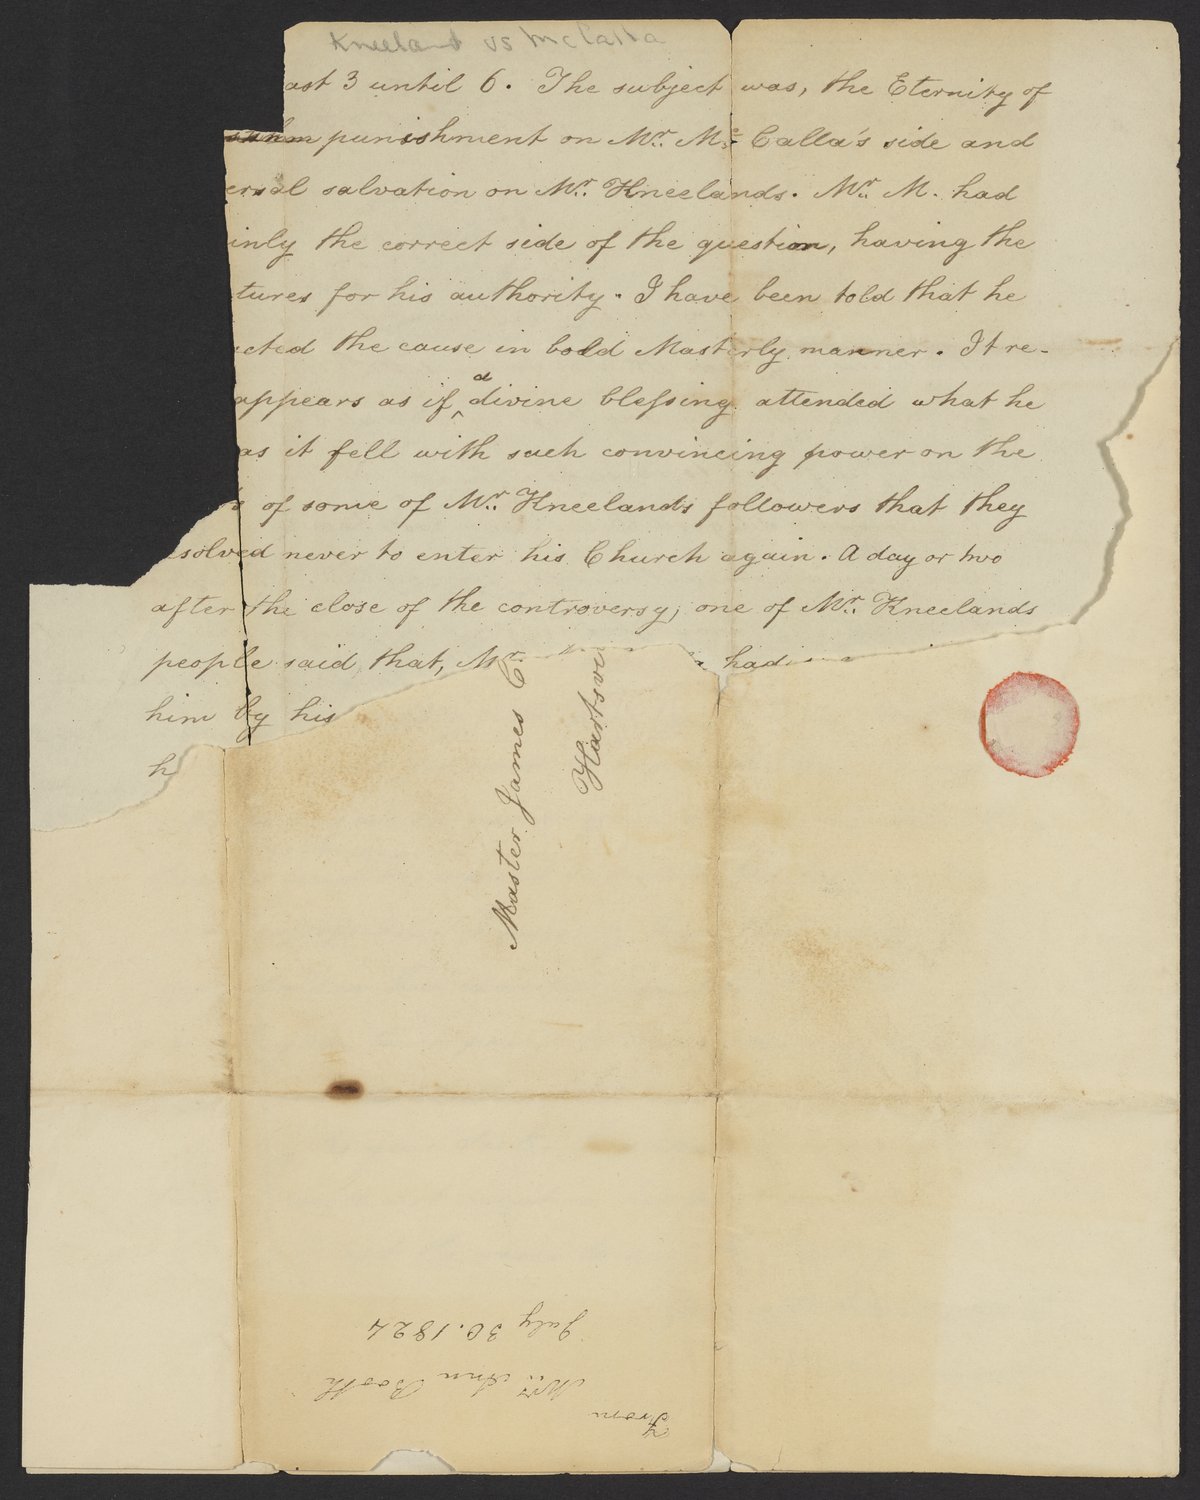 Kneeland vs McCalla
ast 3 until 6. The subject was, the Eternity of
punishment on Mr. Mc Calla's side and
ersal salvation on Mr. Kneelands. Mr. M. had
inly the correct side of the question, having the
tures for his authority. I have been told that he
cted the cause in bold Masterly manner. It re-
appears as if a divine blessing attended what he
as it fell with such convincing power on the
s of some of Mr. Kneelands followers that they
esolved never to enter his Church again. A day or two
after the close of the controversy, one of Mr. Kneelands
people said that, Mr. had
him by his
h
Master James C
Hartsvi
From
Mrs. Ann Booth
July 30. 1824